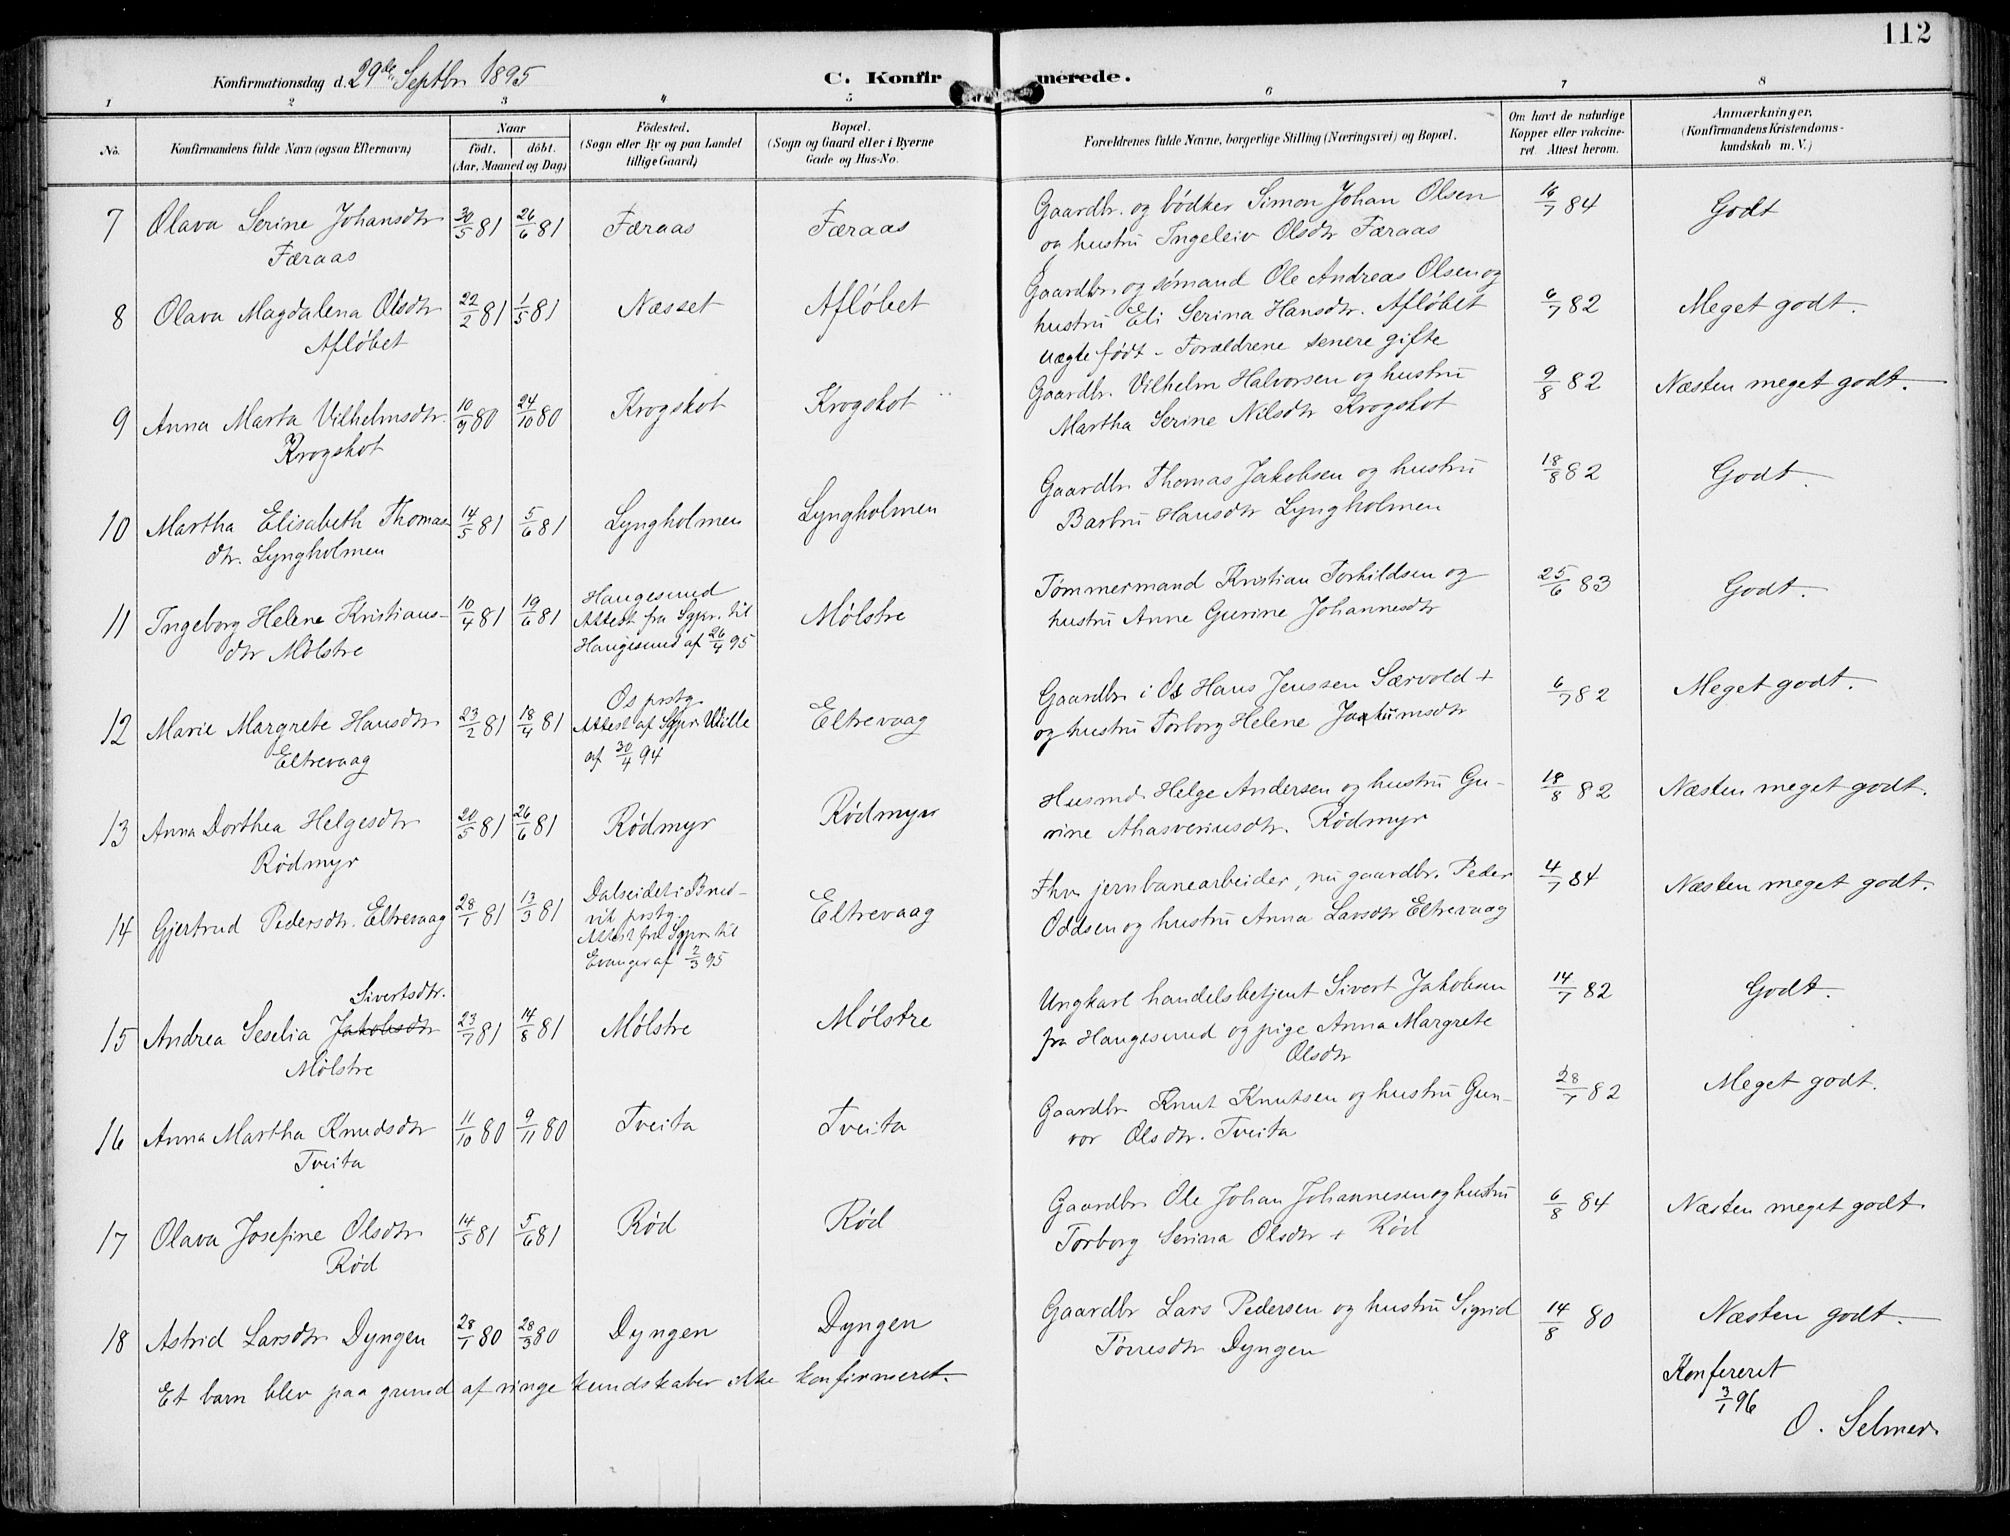 112
Konfirmationsdag d. 29de Septbr 1895
C. Konfirmerede.
1 2 3 4 5 6 7 8
No. Konfirmandens fulde Navn (ogsaa Efternavn) Naar født, døbt. (Aar, Maaned og Dag) Födested. (Sogn eller By og paa Landet tillige Gaard) Bopæl. (Sogn og Gaard eller i Byerne Gade og Hus-No. Forældrenes fulde Navne, borgerlige Stilling (Næringsvei) og Bopæl. Om havt de naturlige Kopper eller vakcineret. Attest herom. Anmærkninger. (Konfirmandens Kristendomskundskab m. V.)
7 Olava Serine Johansdtr 30/5 81 26/6 81 Færaas Færaas Gaardbr. og bødker Simon Johan Olsen 16/7 84 Godt
Færaas og hustru Ingeleiv Olsdtr Færaas
8 Olava Magdalena Olsdtr 22/2 81 1/5 81 Næsset Afløbet Gaardbr. og sømand Ole Andreas Olsen og 6/7 82 Meget godt.
Afløbet hustru Eli Serina Hansdtr. Afløbet
uægte født - Forældrene senere gifte
9 Anna Marta Vilhelmsdtr. 10/9 80 24/10 80 Krogshot Krogshot Gaardbr. Vilhelm Halvorsen og hustru 9/8 82 Næsten meget godt.
Krogshot Martha Serine Nilsdtr Krogshot
10 Martha Elisabeth Thomas 14/5 81 5/6 81 Lyngholmen Lyngholmen Gaardbr Thomas Jakobsen og hustru 18/8 82 Godt.
dtr. Lyngholmen Barbru Hansdtr Lyngholmen
11 Ingeborg Helene Kristians- 10/4 81 19/6 81 Haugesund Mølstre Tømmermand Kristian Torkildsen og 25/6 83 Godt.
dtr Mølstre Attest fra Sgpr. til hustru Anne Gurine Johannesdtr
Haugesund af 26/4 95
12 Marie Margrete Hansdtr 23/2 81 18/4 81 Os prstg. Eltrevaag Gaardbr i Os Hans Jenssen Særvold + 6/7 82 Meget godt.
Eltrevaag Attest af Sgpr. Wille og hustru Torborg Helene
af 30/4 94
13 Anna Dorthea Helgesdtr 20/5 81 26/6 81 Rødmyr Rødmyr Husmd. Helge Andersen og hustru Gu- 18/8 82 Næsten meget godt.
Rødmyr rine Ahasveriusdtr. Rødmyr
14 Gjertrud Pedersdtr. Eltrevaag 28/1 81 13/3 81 Dalseidet i Bruv- Eltrevaag Fhv. jernbanearbeider, nu gaardbr. Peder 4/7 84 Næsten meget godt.
vik prstg. Oddsen og hustru Anna Larsdtr Eltrevaag
Attest fra Sgpr. til
Evanger af 2/3 95
15 Andrea Seselia Jakobsdtr Sivertsdtr. 23/7 81 14/8 81 Mølstre Mølstre Ungkarl handelsbetjent Sivert Jakobsen 14/7 82 Godt.
Mølstre fra Haugesund og pige Anna Margrete
Olsdtr
16 Anna Martha Knudsdtr 11/10 80 9/11 80 Tveita Tveita Gaardbr Knut Knutsen og hustru Gun- 28/7 82 Meget godt.
Tveita vor Olsdtr. Tveita
17 Olava Josefine Olsdtr 14/5 81 5/6 81 Rød Rød Gaardbr Ole Johan Johannesen og hustru 6/8 84 Næsten meget godt.
Rød Torborg Serina Olsdtr + Rød
18 Astrid Larsdtr Dyngen 28/1 80 28/3 80 Dyngen Dyngen Gaardbr Lars Pedersen og hustru Sigrid 14/8 80 Næsten godt.
Tørresdtr Dyngen
Et barn blev paa grund af ringe kundskaber ikke konfirmeret.
Konfereret
3/1 96
O. Selmer